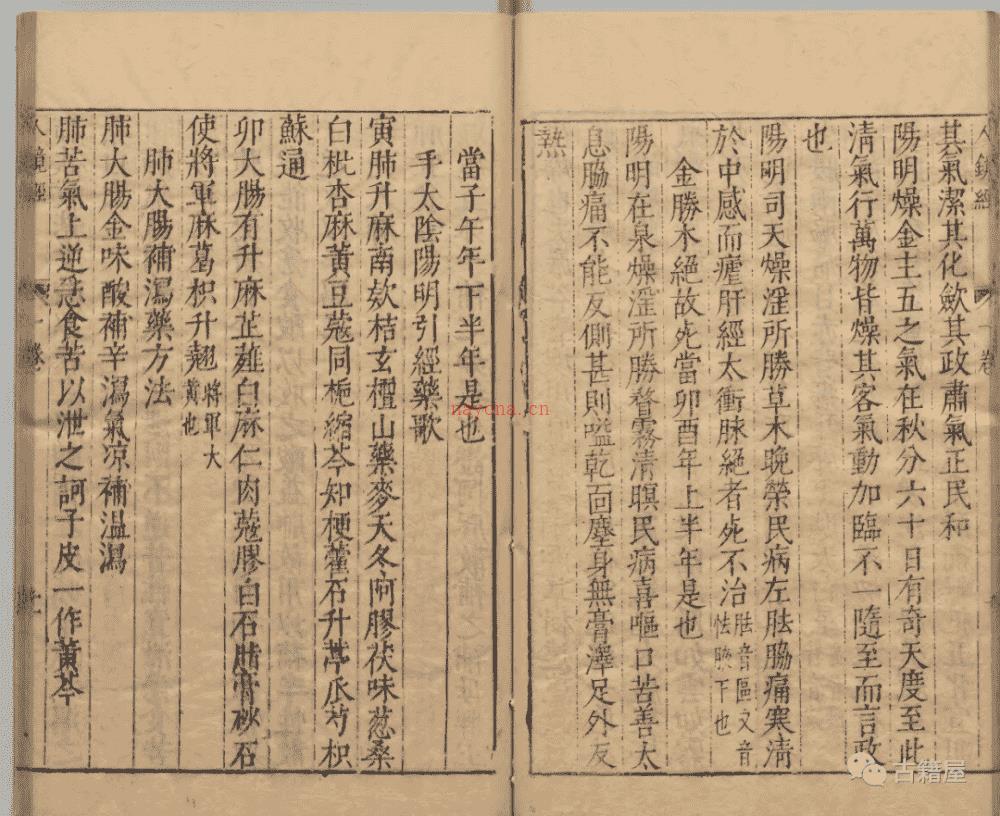 人鏡經 卷
其氣潔其化歛其政肅氣正民和
陽明燥金主五之氣在秋分六十日有奇天度至此
清氣行萬物皆燥其客氣動加臨不一隨至而言政
也
陽明司天燥淫所勝草木晚榮民病左胠脇痛寒清
於中感而瘧肝經太衝脉絶者死不治胠音區又音
怯腋下也
金勝木絶故死當卯酉年上半年是也
陽明在泉燥淫所勝瞀霧清暝民病喜嘔口苦善太
息脇痛不能反側甚則嗌乾面塵身無膏澤足外反
熱
當子午年下半年是也
手太陰陽明引經藥歌
寅肺升麻南欵桔玄檀山藥麥天冬阿膠茯味葱桑
白枇杏麻黃豆蔻同梔縮芩知梗藿石升葶瓜芍枳
蘇通
卯大腸有升麻芷薤白麻仁肉蔻膠白石脂膏秘石
使將軍麻葛枳升翹將軍大
黃也
肺大腸補瀉藥方法
肺大腸金味酸補辛瀉氣凉補溫瀉
肺苦氣上逆急食苦以泄之訶子皮一作黃芩
人鏡經 卷
naycna.cn
古籍屋